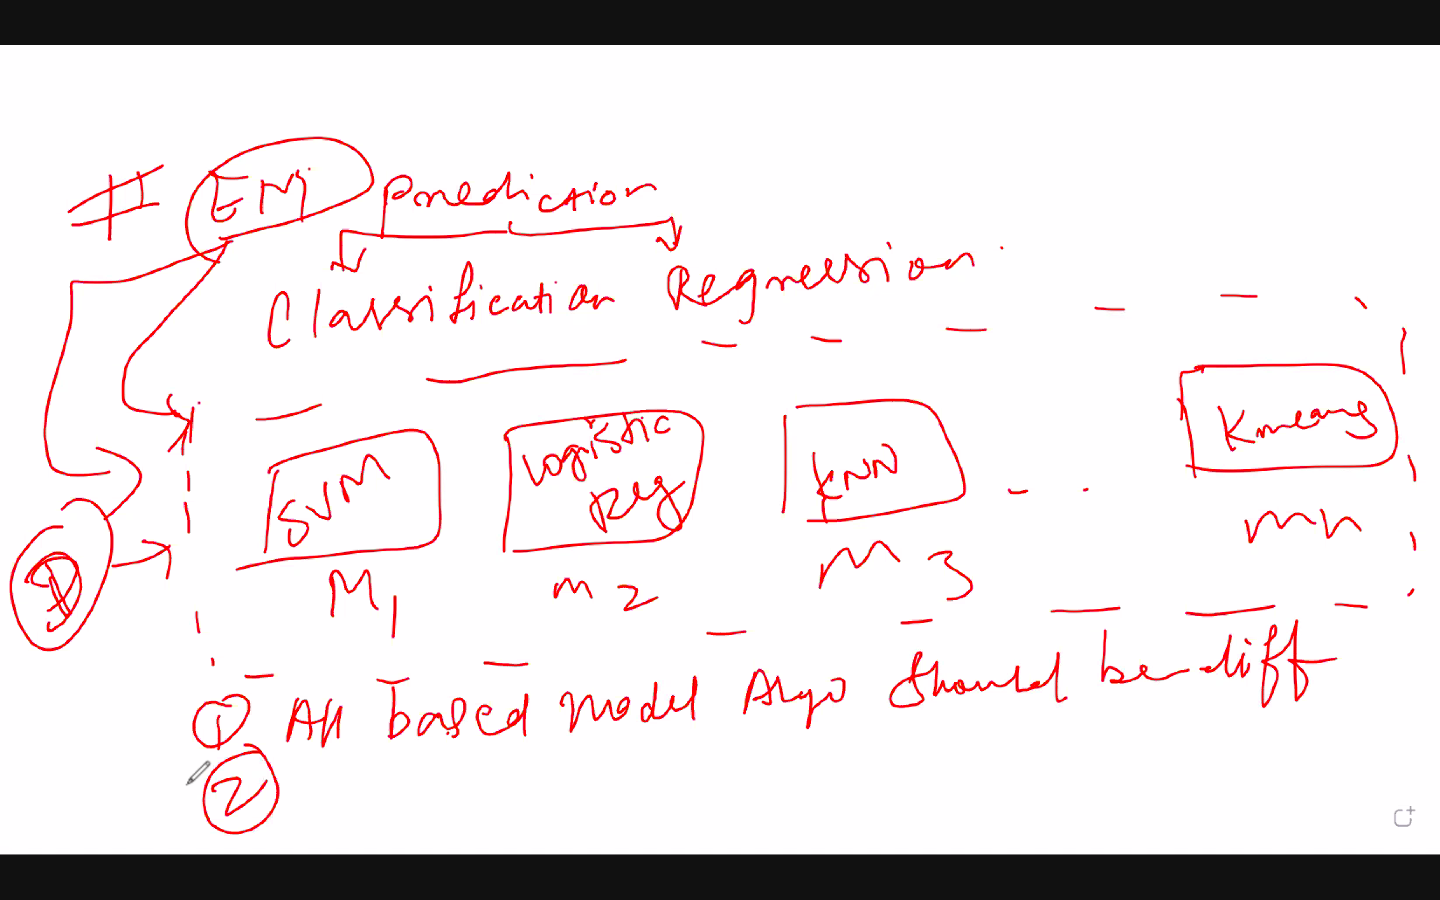 # EM Prediction
Classification Regression
SVM Logistic Reg KNN - . Kmeans
M1 m2 M3 mn
D
① All based model Algo should be diff
②